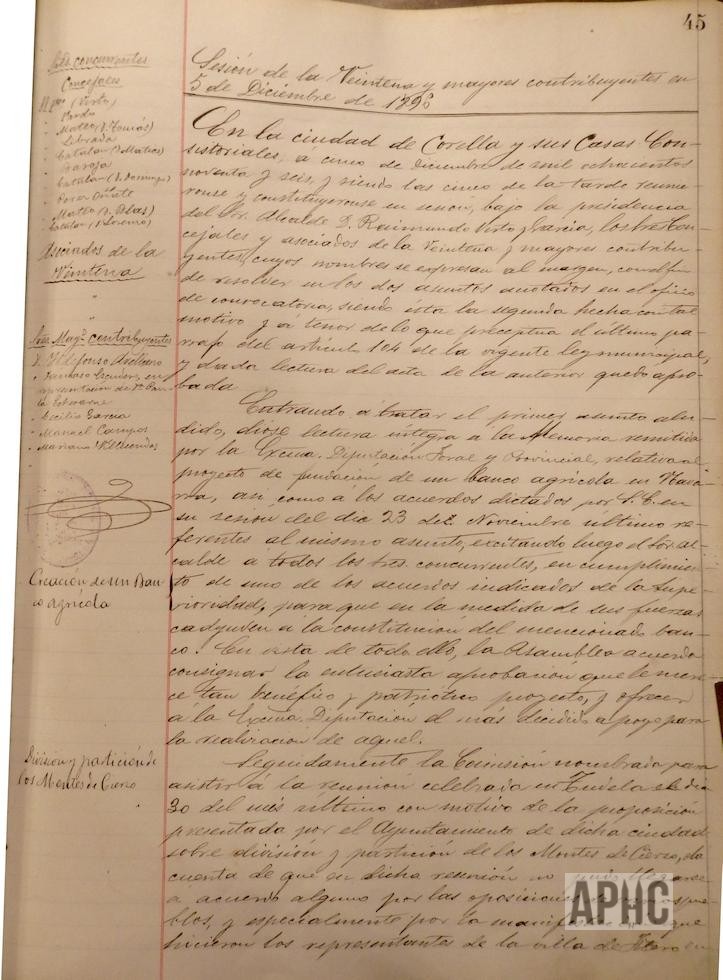 45
Sres. concurrentes
Concejales
(Virto)
Pardo
Mateo (D. Tomás)
Librada
Catalan (D. Matías)
Catalan (D. Domingo)
Oñate
Mateo (D. Blas)
Catalan (D. Lorenzo)
Asociados de la
Veintena
"
Sres. May.s contribuyentes
D. Ildefonso Arellano
representacion de
Cecilio Garcia
Manuel Campos
Mariano
Creación de un Ban-
co agrícola
Division y partición de
los Montes de Cierzo
Sesión de la Veintena y mayores contribuyentes en
5 de Diciembre de 1896
En la ciudad de Corella y sus Casas Con-
sistoriales, a cinco de Diciembre de mil ochocientos
noventa y seis, y siendo las cinco de la tarde reunie-
ronse y constituyeronse en sesión, bajo la presidencia
del Sor. Alcalde D. Raimundo Virto y Garcia, los tres Con-
cejales y asociados de la Veintena y mayores contribu-
yentes, cuyos nombres se expresan al margen, con el fin
de resolver en los dos asuntos anotados en el oficio
de convocatoria, siendo ésta la segunda hecha con tal
motivo y á tenor de lo que preceptua el último pa-
rrafo del artículo 104 de la vigente ley municipal,
y dada lectura del acta de la anterior quedó apro-
bada.
Entrando á tratar el primer asunto alu-
dido, diose lectura íntegra á la Memoria remitida
por la Excma. Diputación Foral y Provincial, relativa al
proyecto de fundación de un banco agrícola en Nava-
rra, asi como á los acuerdos dictados por S. E. en
su sesión del dia 23 de Noviembre último re-
ferentes al mismo asunto, excitando luego el Sor. Al-
calde á todos los tres. concurrentes, en cumplimien-
to de uno de los acuerdos indicados de la Supe-
rioridad, para que en la medida de sus fuerzas
coadyuven á la constitución del mencionado ban-
co. En vista de todo ello, la Asamblea acuerda
consignar la entusiasta aprobación que le mere-
ce tan benéfico y patriótico proyecto, y ofrecer
á la Excma. Diputación el más decidido apoyo para
la realizacion de aquel.
Segundamente la Comisión nombrada para
asistir á la reunión celebrada en Tudela el dia
30 del més ultimo con motivo de la proposición
presentada por el Ayuntamiento de dicha ciudad
sobre división y partición de los Montes de Cierzo, da
cuenta de que en dicha reunión no pudo llegarse
á acuerdo alguno por las oposiciones de
blos, y especialmente por la que
hicieron los representantes de la villa de Fitero en
APHC